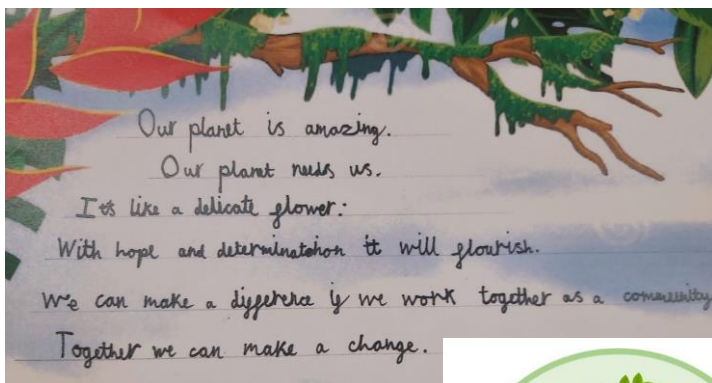 Our planet is amazing.
Our planet needs us.
It's like a delicate flower:
With hope and determinatohon it will flourish.
We can make a difference if we work together as a community
Together we can make a change.